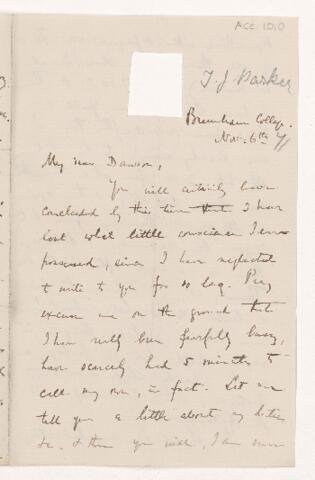 ACC 1010
T. J. Parker
Bramham College.
Nov. 6th 71
My dear Dawson,
You will certainly have
concluded by this time that I have
lost what little conscience I ever
possessed, since I have neglected
to write to you for so long. Pray
excuse me on the ground that
I have really been fearfully busy,
have scarcely had 5 minutes to
call my own, in fact. Let me
tell you a little about my duties
&c. & then you will, I am sure